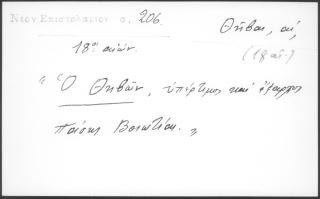 Νεον Επιστολαριον σ. 206.
Θῆβαι, αἱ,
(18 αἰ.)
18ος αἰών.
"Ὁ Θηβῶν, ὑπέρτιμος καὶ ἔξαρχος
πάσης Βοιωτίας."